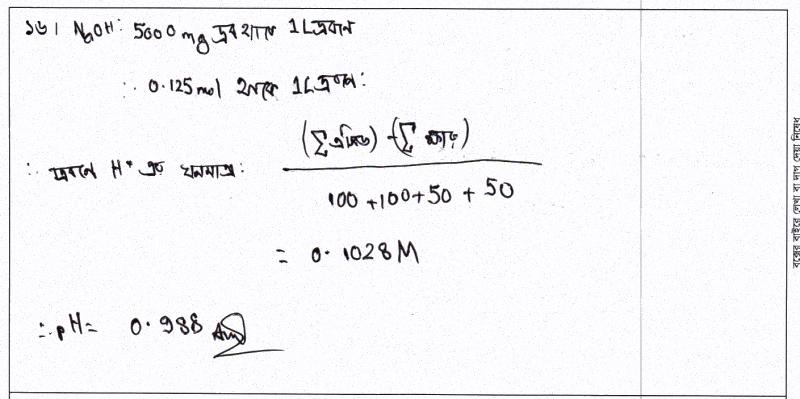 ১৬। NaOH: 5000 mg দ্রব থাকে 1L দ্রবণে
∴ 0.125 mol থাকে 1L দ্রবণে:
∴ দ্রবণে H⁺ এর ঘনমাত্রা: ((∑এসিড) - (∑ক্ষার)) / (100 + 100 + 50 + 50)
= 0.1028 M
∴ pH = 0.988 Ans
বক্সের বাইরে লেখা বা দাগ দেয়া নিষেধ